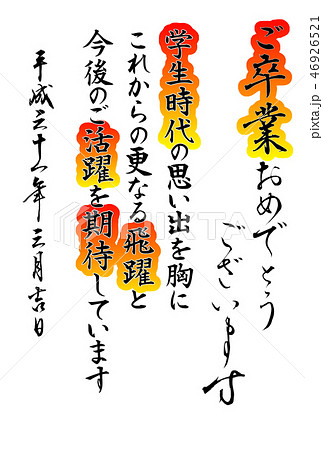 ご卒業おめでとう
ございます
学生時代の思い出を胸に
これからの更なる飛躍と
今後のご活躍を期待しています
平成三十一年三月吉日
PIXTA
pixta.jp - 46926521